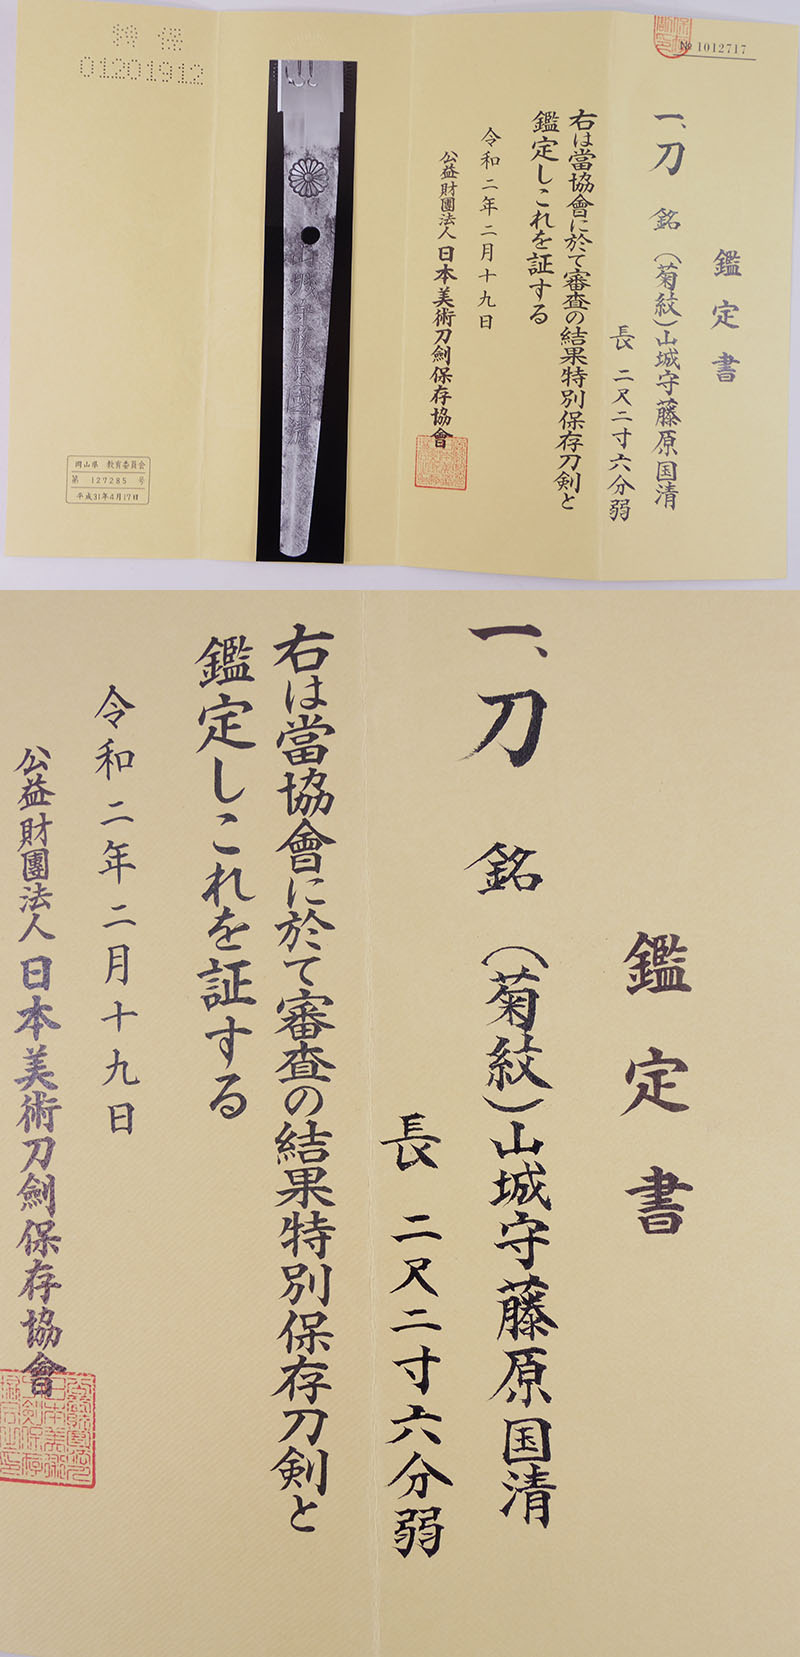 № 1012717
鑑定書
一、刀 銘 (菊紋)山城守藤原国清
長 二尺二寸六分弱
右は當協會に於て審査の結果特別保存刀剣と
鑑定しこれを証する
令和二年二月十九日
公益財團法人 日本美術刀劍保存協會
特保
01201912
岡山県 教育委員会
第 127285 号
平成31年4月17日
鑑定書
一、刀 銘 (菊紋)山城守藤原国清
長 二尺二寸六分弱
右は當協會に於て審査の結果特別保存刀剣と
鑑定しこれを証する
令和二年二月十九日
公益財團法人 日本美術刀劍保存協會